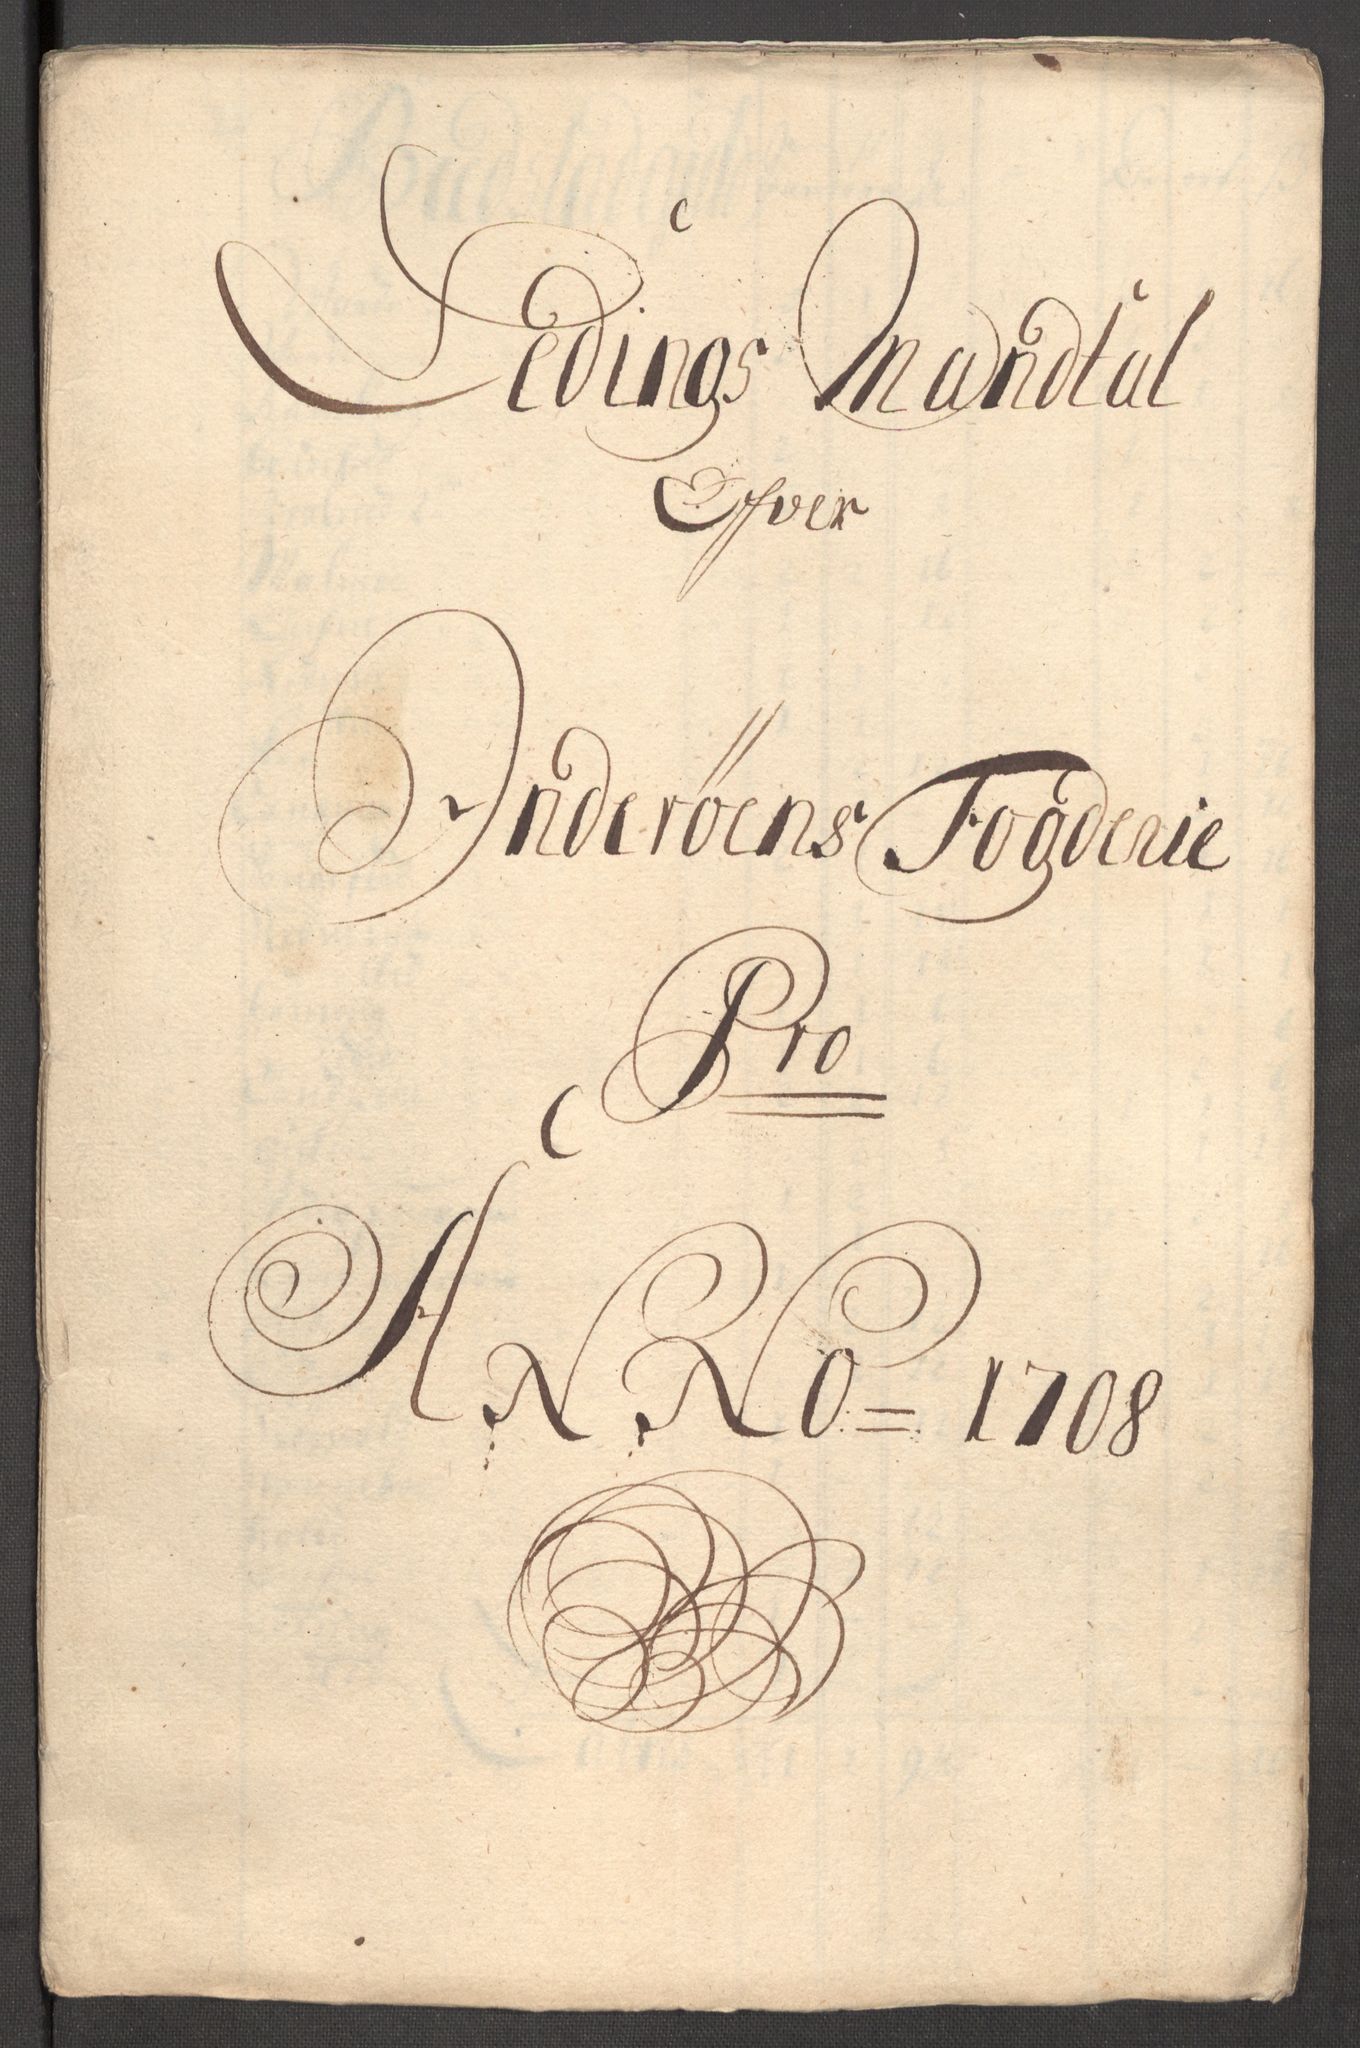 Ledings Mandtal
Ofver
Inderöens Fogderie
Pro
ANNO = 1708